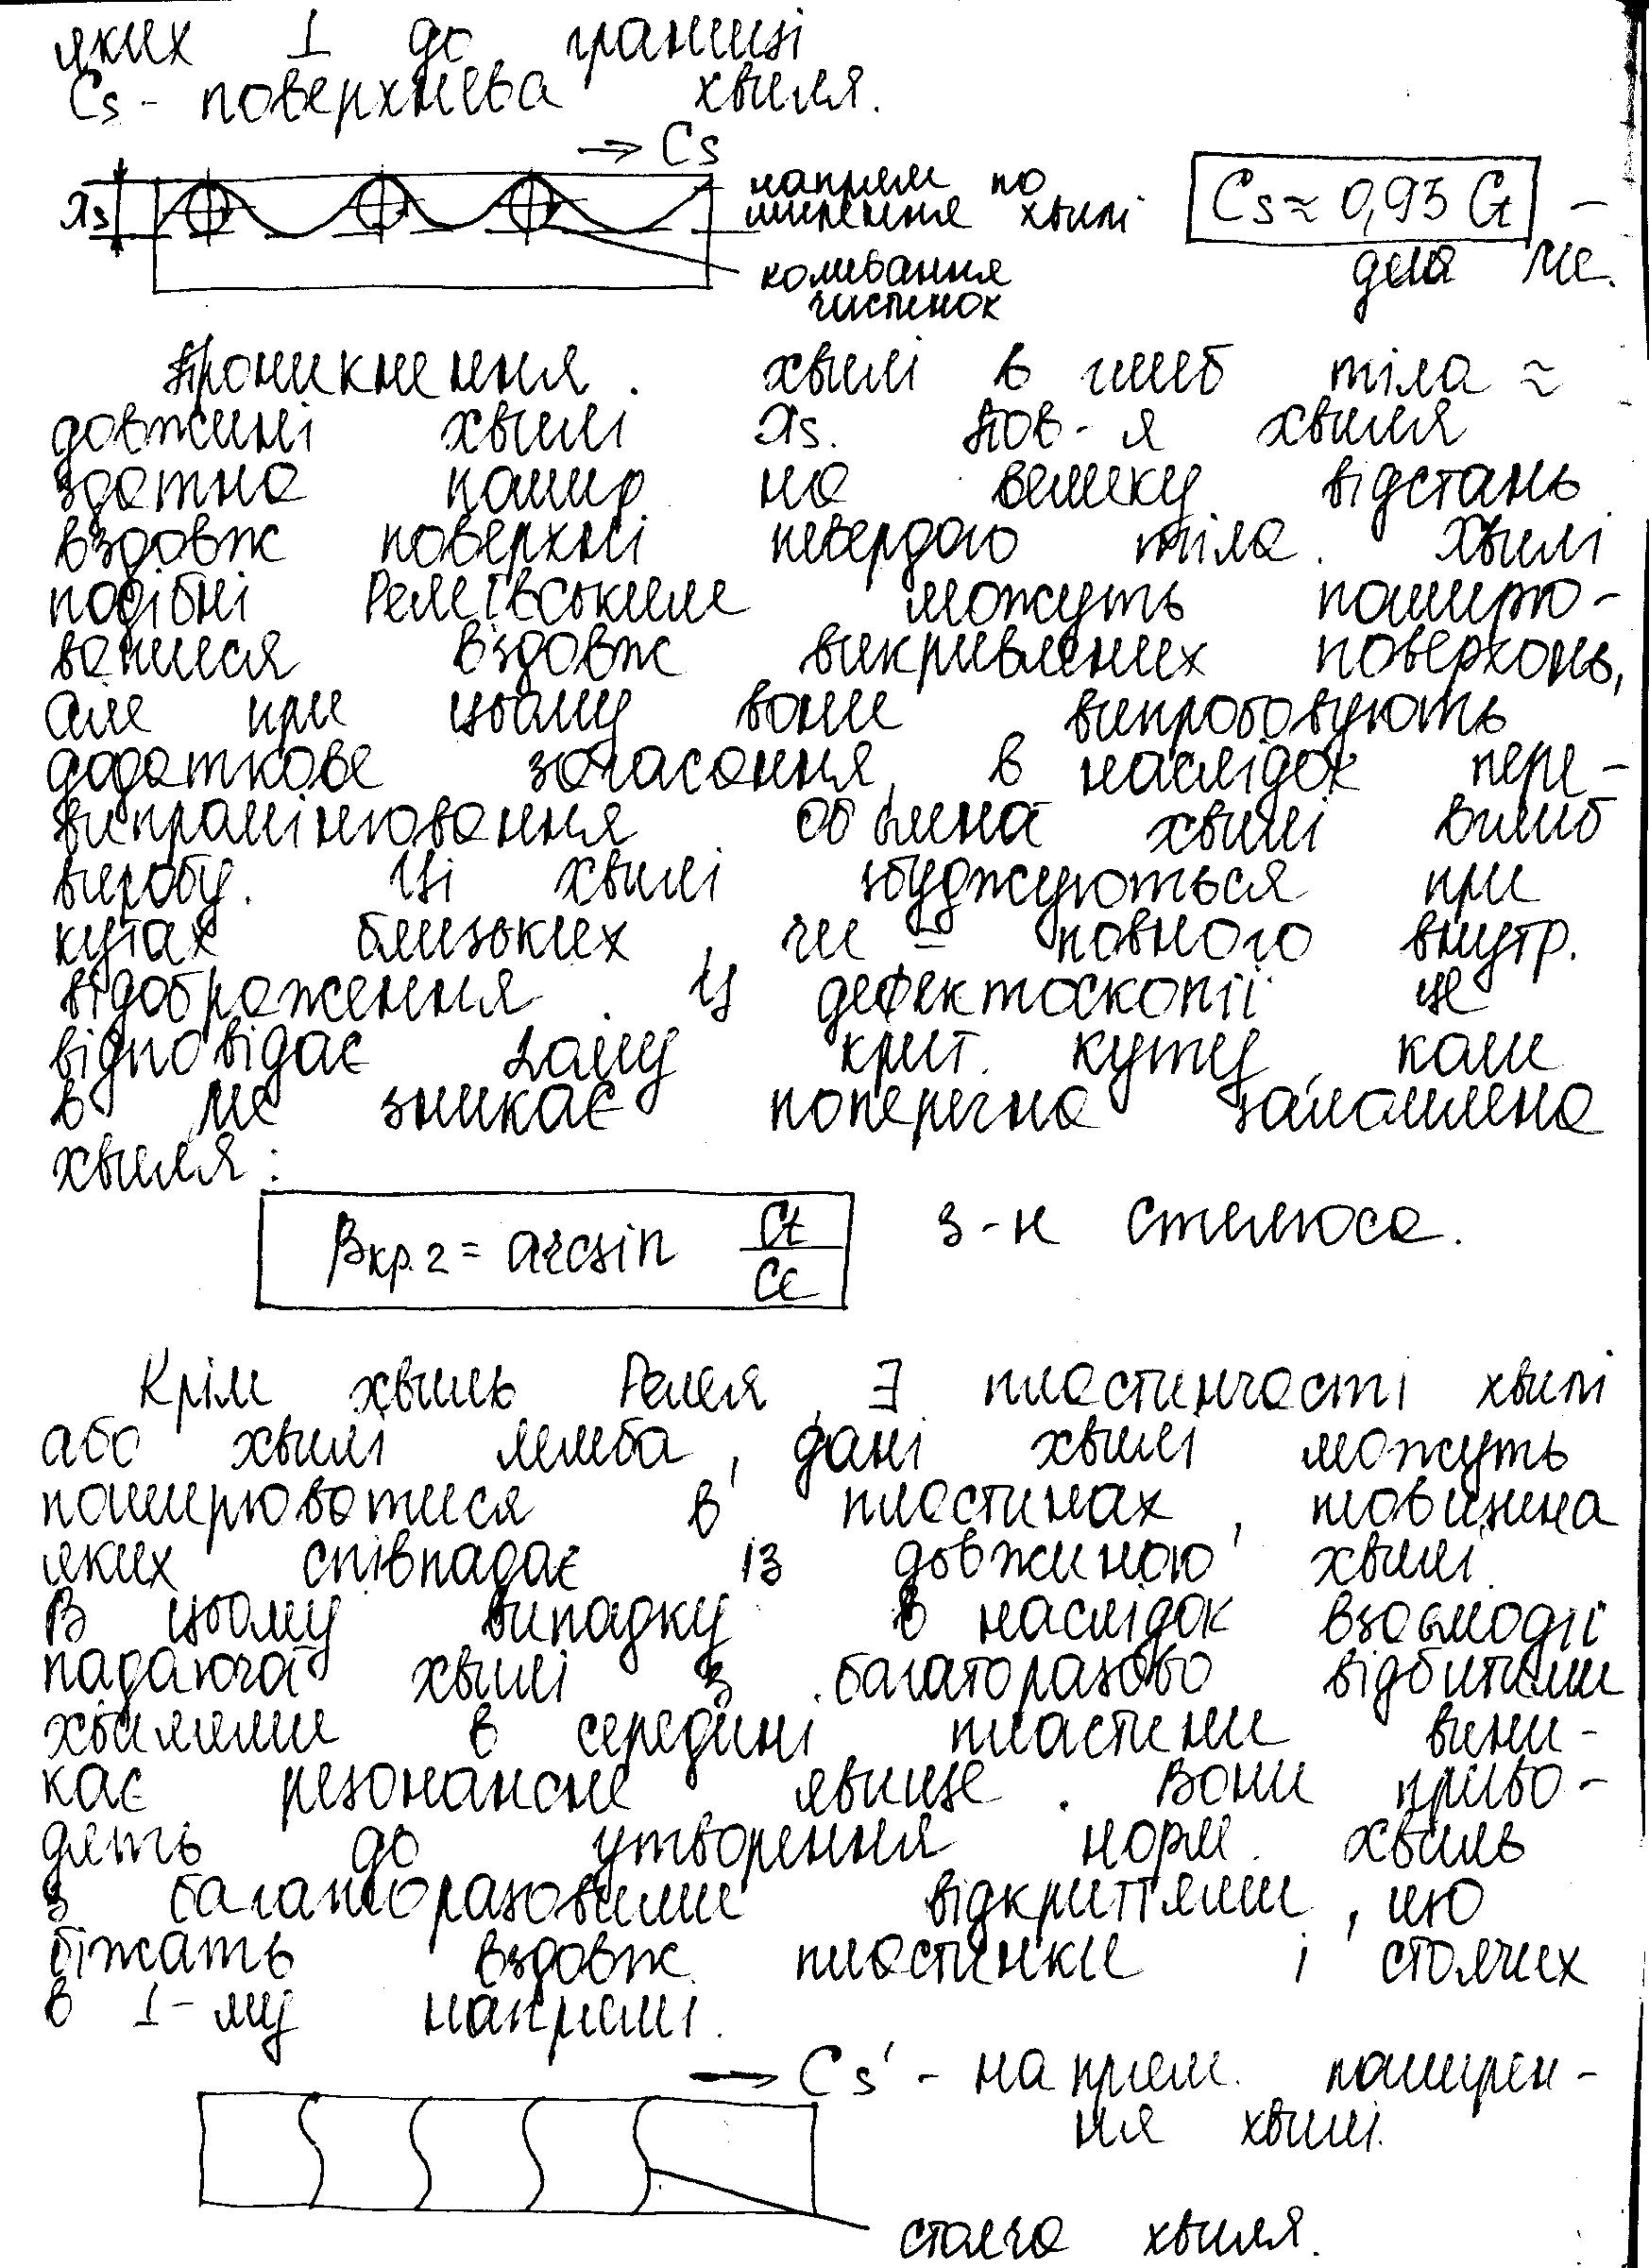 яких ⊥ до границі
Cs - поверхнева хвиля.
→ Cs
напрям по
ширення хвилі
λs
Cs ≈ 0,93 Ct –
для Ме.
коливання
частинок
Проникнення хвилі в глиб тіла ≈
довжині хвилі λs. Пов-я хвиля
здатна пошир на велику відстань
вздовж поверхні твердого тіла. Хвилі
подібні Релеївськими можуть поширю-
ватися вздовж викривлених поверхонь,
але при цьому вони випробовують
додаткове загасання, в наслідок пере-
випромінювання об'ємна хвилі вглиб
виробу. Ці хвилі збуджуються при
кутах близьких, чи = повного внутр.
відображення. У дефектоскопії це
відповідає 2ому крит. куту, коли
в Ме зникає поперечна заломлена
хвиля:
βкр.2 = arcsin Ct/Cl
з-н Снеліуса.
Крім хвиль Релея, ∃ пластинчасті хвилі
або хвилі Лемба, дані хвилі можуть
поширюватися в пластинах, товщина
яких співпадає із довжиною хвилі.
В цьому випадку в наслідок взаємодії
падаючої хвилі з багаторазово відбитими
хвилями в середині пластини вини-
кає резонансне явище. Вони приво-
дять до утворення норм. хвиль
з багаторазовими відкриттями, що
біжать вздовж пластинки і стоячих
в ⊥-му напрямі.
→ Cs' - напрям. поширен-
ня хвилі.
стояча хвиля.